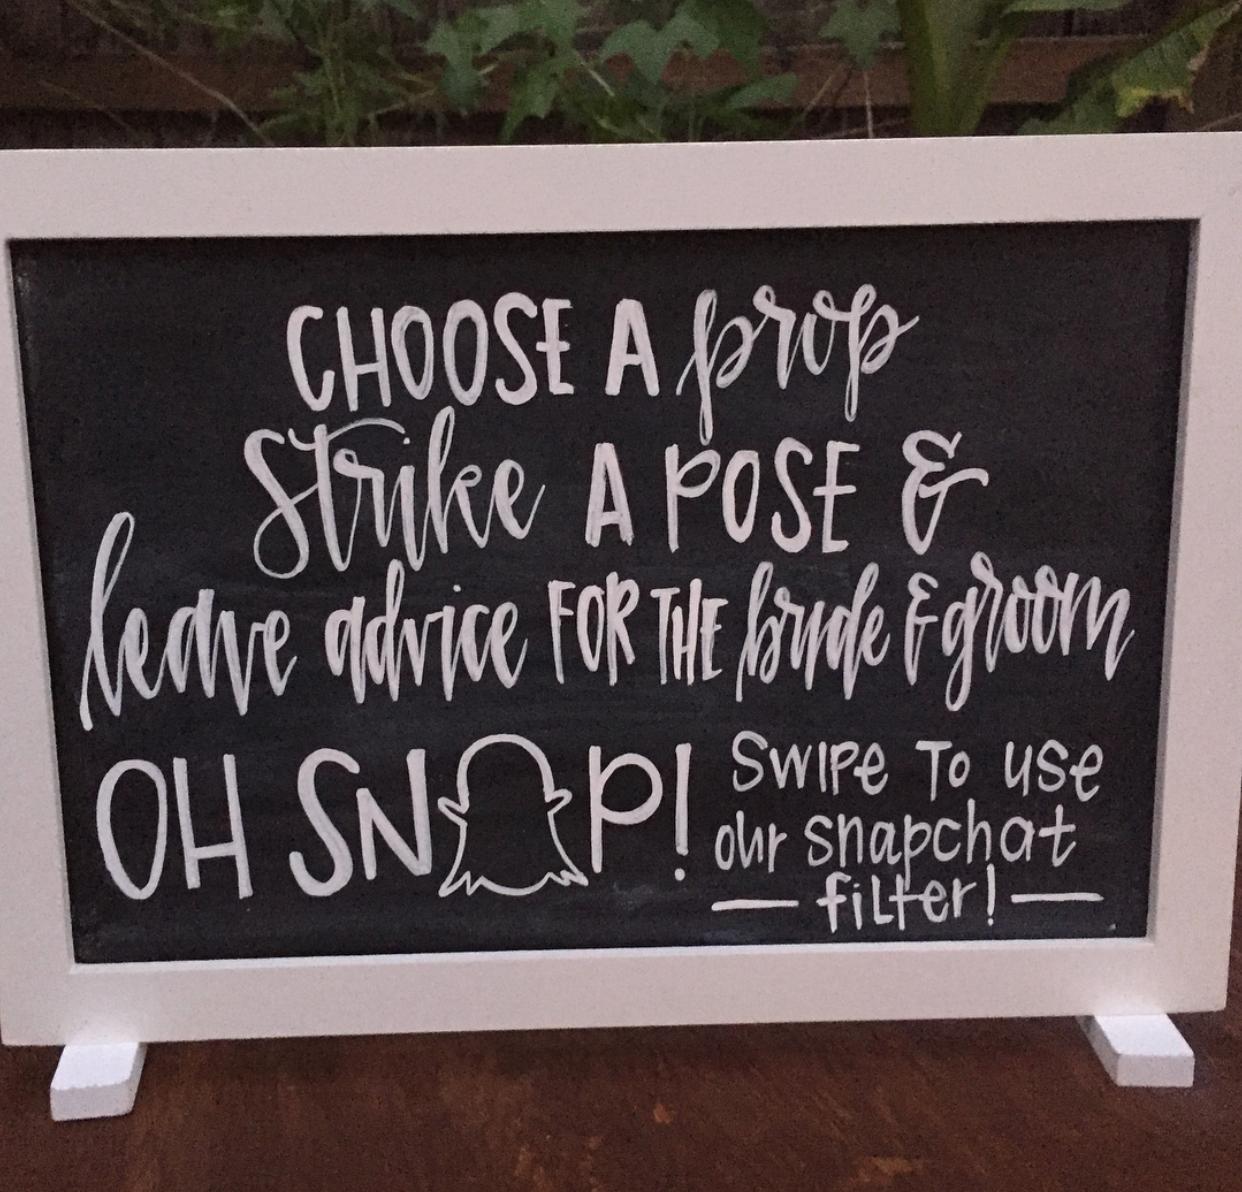 CHOOSE A prop
Strike A POSE &
leave advice FOR THE bride & groom
OH SNAP!
SWIPe To use
our snapchat
filter!